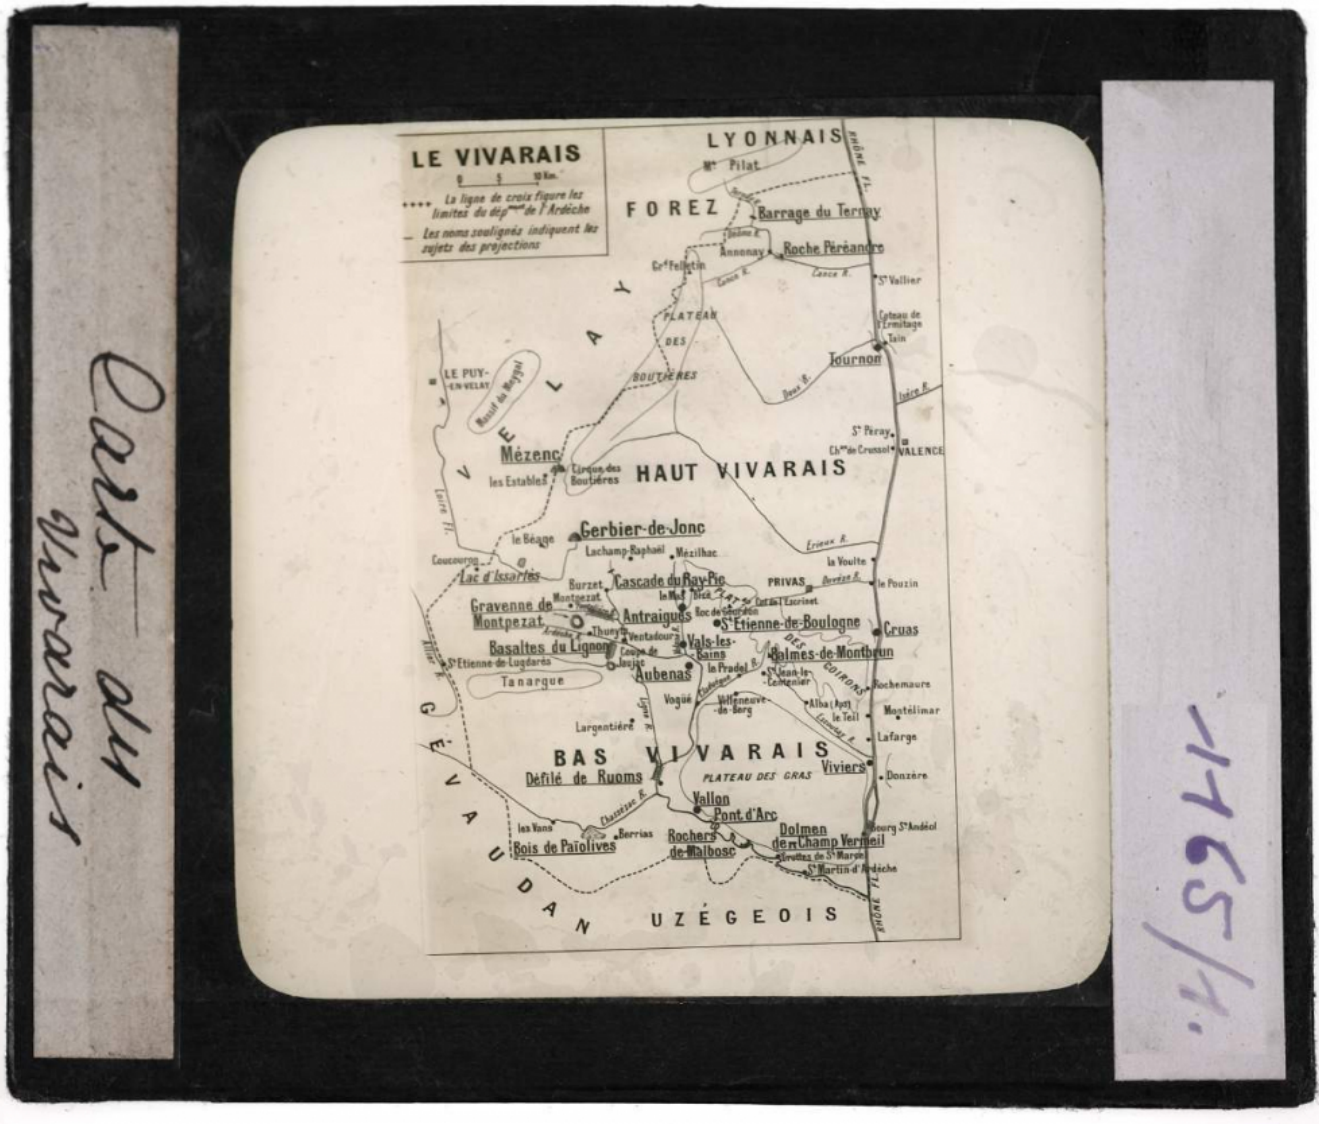 Carte du
Vivarais
LE VIVARAIS
0 5 10 Km.
La ligne de croix figure les
limites du dépᵐᵉⁿᵗ de l'Ardèche
Les noms soulignés indiquent les
sujets des projections
LYONNAIS
RHÔNE FL.
Mᵗ Pilat
FOREZ
Barrage du Ternay
Déôme R.
Annonay
Roche Péréandre
Gᵈ Felletin
Cance R.
Cance R.
Sᵗ Vallier
VELAY
PLATEAU
DES
BOUTIÈRES
Coteau de
l'Ermitage
Tain
Tournon
LE PUY-
-EN-VELAY
Massif du Meygal
Doux R.
Isère R.
Sᵗ Péray
Chᵃᵘ de Crussol
VALENCE
Mézenc
les Estables
Cirque des
Boutières
HAUT VIVARAIS
Loire Fl.
Gerbier-de-Jonc
le Béage
Lachamp-Raphaël
Mézilhac
Erieux R.
la Voulte
Coucouron
Lac d'Issarlès
Burzet
Cascade du Ray-Pic
PRIVAS
Ouvèze R.
le Pouzin
Montpezat
Gravenne de
Montpezat
Antraigues
Roc de Gourdon
Col de l'Escrinet
Sᵗ Etienne-de-Boulogne
Cruas
Ardèche R.
Thueyts
Ventadour
Basaltes du Lignon
Coupe de
Jaujac
Vals-les-
-Bains
PLATEAU DES COIRONS
Balmes-de-Montbrun
Allier R.
Sᵗ Etienne-de-Lugdarès
Tanargue
Aubenas
le Pradel
Sᵗ Jean-le-
-Centenier
Rochemaure
Vogüé
Villeneuve-
-de-Berg
Alba (Aps)
le Teil
Montélimar
Largentière
Ligne R.
Escoutay R.
Lafarge
GÉVAUDAN
BAS VIVARAIS
Défilé de Ruoms
PLATEAU DES GRAS
Viviers
Donzère
Chassezac R.
Vallon
Pont d'Arc
les Vans
Berrias
Bois de Païolives
Rochers
de Malbosc
Dolmen
de Champ Vermeil
Bourg Sᵗ Andéol
Grottes de Sᵗ Marcel
Sᵗ Martin-d'Ardèche
UZÉGEOIS
RHÔNE FL.
1165/1.